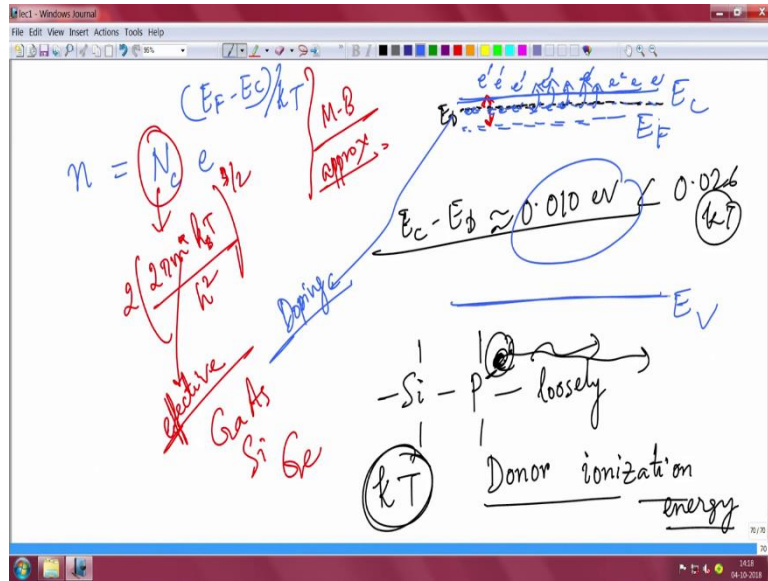 lec1 - Windows Journal
File Edit View Insert Actions Tools Help
96%
(E_F-E_C)/kT
n = N_c e
M-B
approx
2(2πm*k_BT/h²)^3/2
effective
GaAs
Si Ge
Doping
e' e' e' e' e' e' e e'
E_C
E_D
E_F
E_C - E_D ≈ 0.010 eV < 0.026
kT
E_V
-Si - P - loosely
kT
Donor ionization
energy
70/70
70
14:18
04-10-2018